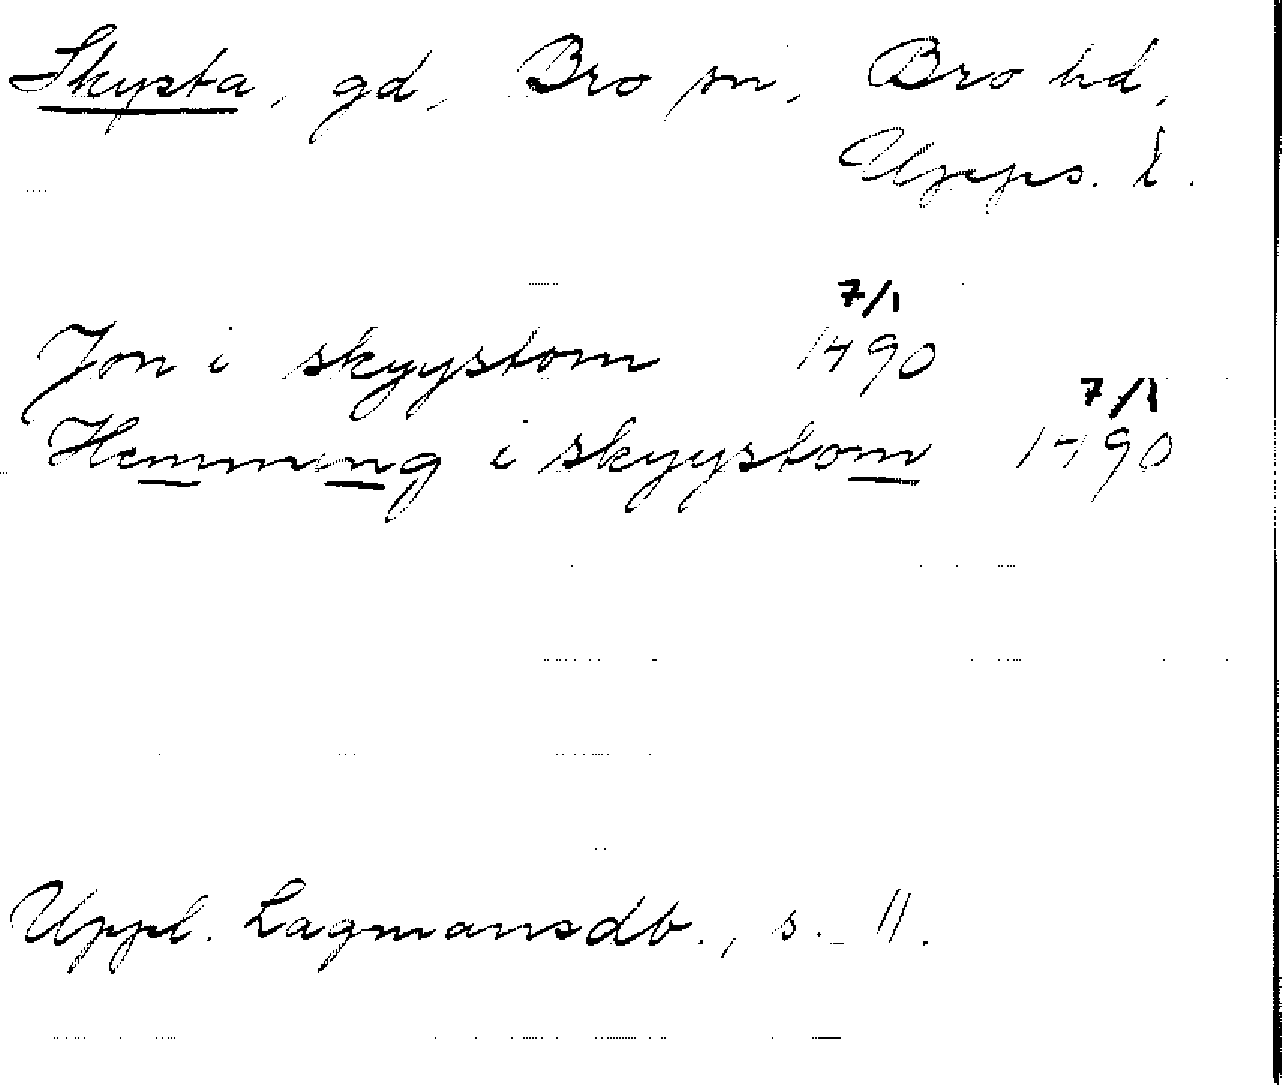 Skysta, gd, Bro sn, Bro hd,
Upps. l.
Jon i skyystom 7/1 1490
Hemming i skyystom 7/1 1490
Uppl. Lagmansdb., s. 11.